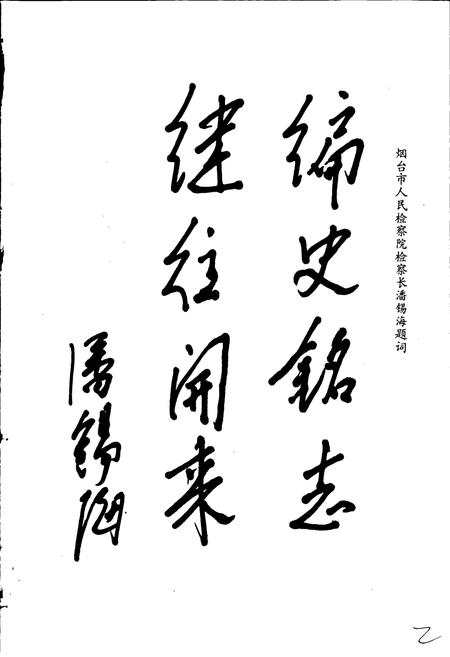 烟台市人民检察院检察长潘锡海题词
编史铭志
继往开来
潘锡海